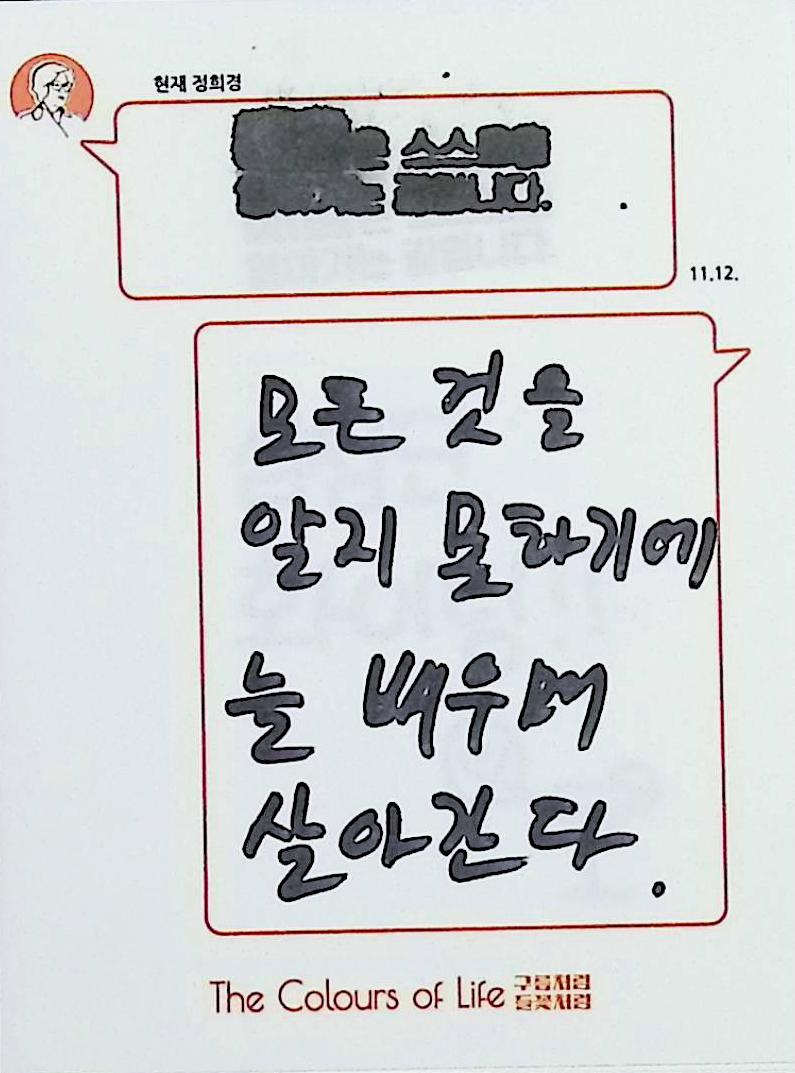 현재 정희경
스스
11.12.
모든 것을
알지 못하기에
늘 배우며
살아간다.
The Colours of Life 구름처럼
들꽃처럼